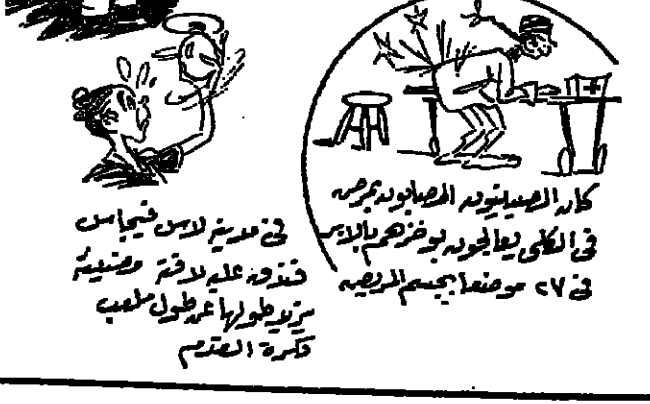 كان الصينيون المصابون بمرض
فى الكلى يعالجون بوخزهم بالابر
فى ٢٧ موضعا بجسم المريض
فى مدينة لاس فيجاس
فندق عليه لافتة مضيئة
يزيد طولها عن طول ملعب
لكرة القدم